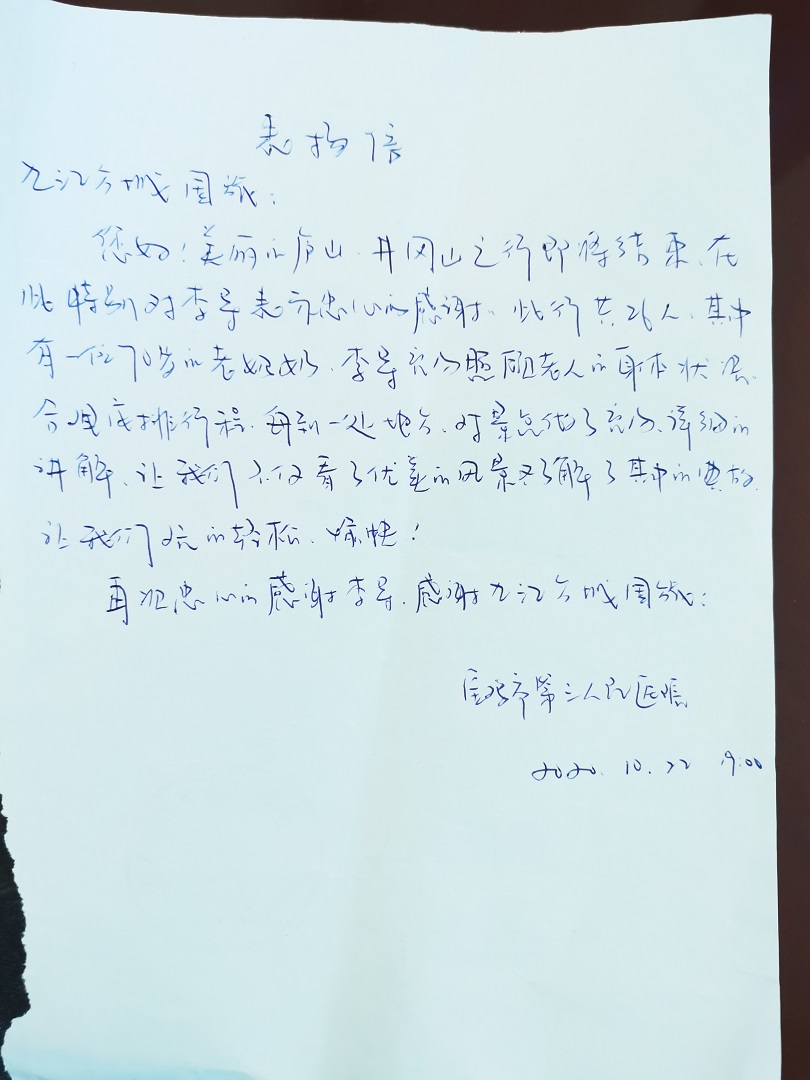 表扬信
九江方城国旅：
您好！美丽的庐山、井冈山之行即将结束、在
此特别对李导表示忠心的感谢。此行共26人、其中
有一位70岁的老奶奶、李导充分照顾老人的身体状况、
合理安排行程、每到一处地方、对景点做了充分、详细的
讲解、让我们不仅看了优美的风景又了解了其中的典故、
让我们玩的轻松、愉快！
再次忠心的感谢李导、感谢九江方城国旅！
市第三人民医院
2020. 10. 22 19:00